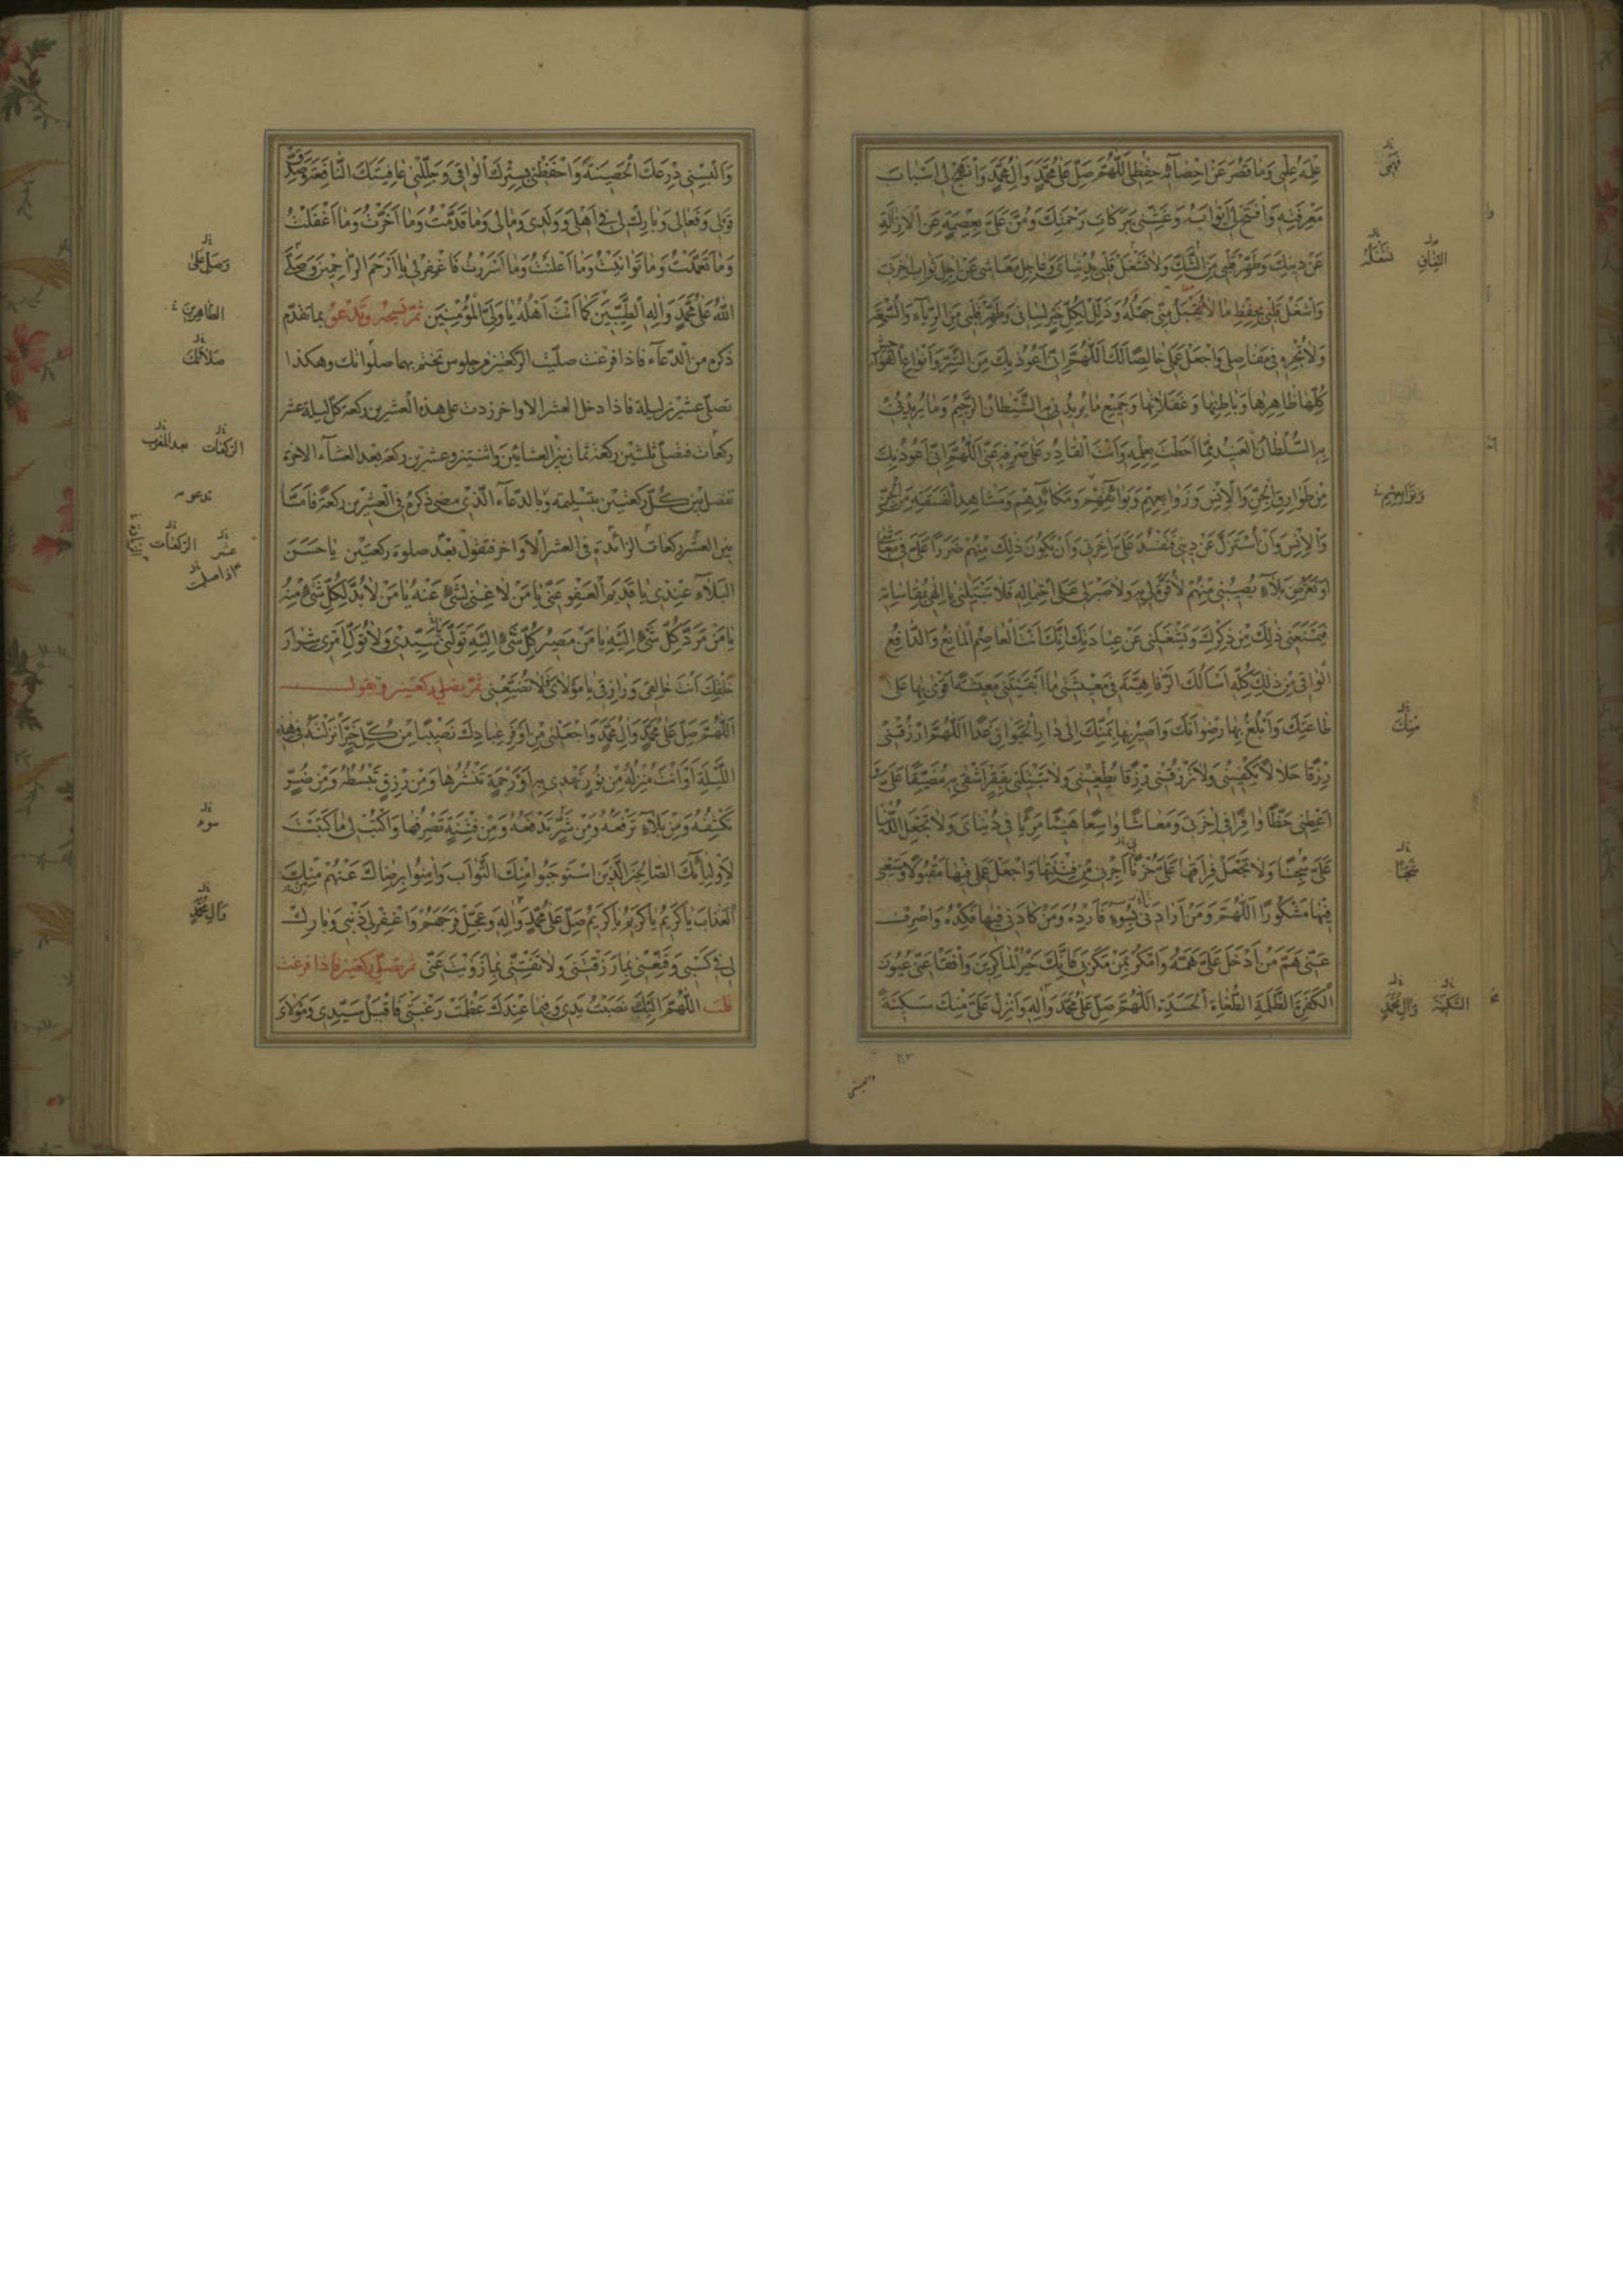 عِلْمَهُ عِلْمِى وَمَا قَصُرَ عَنْ اِحْصَآئِهِ حِفْظِى اَللّٰهُمَّ صَلِّ عَلٰى مُحَمَّدٍ وَاٰلِ مُحَمَّدٍ وَانْهَجْ لِى اَسْبَابَ
مَعْرِفَتِهِ وَافْتَحْ لِى اَبْوَابَهُ وَغَشِّنِى بَرَكَاتِ رَحْمَتِكَ وَمُنَّ عَلَىَّ بِعِصْمَةٍ عَنِ الْاِزَالَةِ
عَنْ دِينِكَ وَطَهِّرْ قَلْبِى مِنَ الشَّكِّ وَلَا تَشْغَلْ قَلْبِى بِدُنْيَاىَ وَعَاجِلِ مَعَاشِى عَنْ اٰجِلِ ثَوَابِ اٰخِرَتِى
وَاشْغَلْ قَلْبِى بِحِفْظِ مَا لَا تَقْبَلُ مِنِّى جَهْلَهُ وَذَلِّلْ لِكُلِّ خَيْرٍ لِسَانِى وَطَهِّرْ قَلْبِى مِنَ الرِّيَآءِ وَالسُّمْعَةِ
وَلَا تُجْرِهِ فِى مَفَاصِلِى وَاجْعَلْ عَمَلِى خَالِصًا لَكَ اَللّٰهُمَّ اِنِّى اَعُوذُ بِكَ مِنَ الشَّرِّ وَاَنْوَاعِ الْفَوَاحِشِ
كُلِّهَا ظَاهِرِهَا وَبَاطِنِهَا وَغَفَلَاتِهَا وَجَمِيعِ مَا يُرِيدُنِى بِهِ الشَّيْطَانُ الرَّجِيمُ وَمَا يُرِيدُنِى
بِهِ السُّلْطَانُ الْعَنِيدُ مِمَّا اَحَطْتَ بِعِلْمِهِ وَاَنْتَ الْقَادِرُ عَلٰى صَرْفِهِ عَنِّى اَللّٰهُمَّ اِنِّى اَعُوذُ بِكَ
مِنْ طَوَارِقِ الْجِنِّ وَالْاِنْسِ وَزَوَابِعِهِمْ وَبَوَائِقِهِمْ وَمَكَائِدِهِمْ وَمَشَاهِدِ الْفَسَقَةِ مِنَ الْجِنِّ
وَالْاِنْسِ وَاَنْ اُسْتَزَلَّ عَنْ دِينِى فَتَفْسُدَ عَلَىَّ اٰخِرَتِى وَاَنْ يَكُونَ ذٰلِكَ مِنْهُمْ ضَرَرًا عَلَىَّ فِى مَعَاشِى
اَوْ تَعَرُّضِ بَلَآءٍ يُصِيبُنِى مِنْهُمْ لَا قُوَّةَ لِى بِهِ وَلَا صَبْرَ لِى عَلَى احْتِمَالِهِ فَلَا تَبْتَلِيَنِّى يَا اِلٰهِى بِمُقَاسَاتِهِ
فَيَمْنَعَنِى ذٰلِكَ مِنْ ذِكْرِكَ وَيَشْغَلَنِى عَنْ عِبَادَتِكَ اِنَّكَ اَنْتَ الْعَاصِمُ الْمَانِعُ وَالدَّافِعُ
الْوَاقِى مِنْ ذٰلِكَ كُلِّهِ اَسْاَلُكَ الرَّفَاهِيَّةَ فِى مَعِيشَتِى مَا اَبْقَيْتَنِى مَعِيشَةً اَقْوٰى بِهَا عَلٰى
طَاعَتِكَ وَاَبْلُغُ بِهَا رِضْوَانَكَ وَاَصِيرُ بِهَا بِمَنِّكَ اِلٰى دَارِ الْحَيَوَانِ غَدًا اَللّٰهُمَّ ارْزُقْنِى
رِزْقًا حَلَالًا يَكْفِينِى وَلَا تَرْزُقْنِى رِزْقًا يُطْغِينِى وَلَا تَبْتَلِنِى بِفَقْرٍ اَشْقٰى بِهِ مُضَيِّقًا عَلَىَّ وَ
اَعْطِنِى حَظًّا وَافِرًا فِى اٰخِرَتِى وَمَعَاشًا وَاسِعًا هَنِيئًا مَرِيئًا فِى دُنْيَاىَ وَلَا تَجْعَلِ الدُّنْيَا
عَلَىَّ سِجْنًا وَلَا تَجْعَلْ فِرَاقَهَا عَلَىَّ حُزْنًا اَجِرْنِى مِنْ فِتْنَتِهَا وَاجْعَلْ عَمَلِى فِيهَا مَقْبُولًا وَسَعْيِى
فِيهَا مَشْكُورًا اَللّٰهُمَّ وَمَنْ اَرَادَنِى بِسُوءٍ فَاَرِدْهُ وَمَنْ كَادَنِى فِيهَا فَكِدْهُ وَاصْرِفْ
عَنِّى هَمَّ مَنْ اَدْخَلَ عَلَىَّ هَمَّهُ وَامْكُرْ بِمَنْ مَكَرَ بِى فَاِنَّكَ خَيْرُ الْمَاكِرِينَ وَافْقَأْ عَنِّى عُيُونَ
الْكَفَرَةِ الظَّلَمَةِ الطُّغَاةِ الْحَسَدَةِ اَللّٰهُمَّ صَلِّ عَلٰى مُحَمَّدٍ وَاٰلِهِ وَاَنْزِلْ عَلَىَّ مِنْكَ سَكِينَةً
السَّكِينَةَ
وَاٰلِ مُحَمَّدٍ
مِنْكَ
٢٠٣
وَاَلْبِسْنِى دِرْعَكَ الْحَصِينَةَ وَاحْفَظْنِى بِسِتْرِكَ الْوَاقِى وَجَلِّلْنِى عَافِيَتَكَ النَّافِعَةَ وَصَدِّقْ
قَوْلِى وَفَعَالِى وَبَارِكْ لِى فِى اَهْلِى وَوَلَدِى وَمَالِى وَمَا قَدَّمْتُ وَمَا اَخَّرْتُ وَمَا اَغْفَلْتُ
وَمَا تَعَمَّدْتُ وَمَا تَوَانَيْتُ وَمَا اَعْلَنْتُ وَمَا اَسْرَرْتُ فَاغْفِرْ لِى يَا اَرْحَمَ الرَّاحِمِينَ وَصَلَّى
اللّٰهُ عَلٰى مُحَمَّدٍ وَاٰلِهِ الطَّيِّبِينَ كَمَا اَنْتَ اَهْلُهُ يَا وَلِىَّ الْمُؤْمِنِينَ ثُمَّ تَسْجُدُ وَتَدْعُوْ بما تقدّم
ذكره من الدّعآء فاذا فرغت صلّيت الرّكعتين من جلوس تختم بهما صلواتك وهكذا
تصلّى عشرين ليلة فاذا دخل العشر الاواخر زدت على هذه العشرين ركعة كلّ ليلة عشر
ركعات فتصلّى ثلثين ركعة ثمان بين العشائين واثنتين وعشرين ركعة بعد العشآء الاخرة
تفصل بين كلّ ركعتين بتسليمة وبالدّعآء الّذى مضى ذكره فى العشرين ركعة فامّا
بين العشر ركعات الزّائدة فى العشر الاواخر فتقول بعد صلوة ركعتين يَا حَسَنَ
الْبَلَآءِ عِنْدِى يَا قَدِيمَ الْعَفْوِ عَنِّى يَا مَنْ لَا غِنٰى لِشَىْءٍ عَنْهُ يَا مَنْ لَا بُدَّ لِكُلِّ شَىْءٍ مِنْهُ
يَا مَنْ مَرَدُّ كُلِّ شَىْءٍ اِلَيْهِ يَا مَنْ مَصِيرُ كُلِّ شَىْءٍ اِلَيْهِ تَوَلَّنِى سَيِّدِى وَلَا تُوَلِّ اَمْرِى شِرَارَ
خَلْقِكَ اَنْتَ خَالِقِى وَرَازِقِى يَا مَوْلَاىَ فَلَا تُضَيِّعْنِى ثمّ تصلّى ركعتين وتقول
اَللّٰهُمَّ صَلِّ عَلٰى مُحَمَّدٍ وَاٰلِ مُحَمَّدٍ وَاجْعَلْنِى مِنْ اَوْفَرِ عِبَادِكَ نَصِيبًا مِنْ كُلِّ خَيْرٍ اَنْزَلْتَهُ فِى هٰذِهِ
اللَّيْلَةِ اَوْ اَنْتَ مُنْزِلُهُ مِنْ نُورٍ تَهْدِى بِهِ اَوْ رَحْمَةٍ تَنْشُرُهَا وَمِنْ رِزْقٍ تَبْسُطُهُ وَمِنْ ضُرٍّ
تَكْشِفُهُ وَمِنْ بَلَآءٍ تَرْفَعُهُ وَمِنْ شَرٍّ تَدْفَعُهُ وَمِنْ فِتْنَةٍ تَصْرِفُهَا وَاكْتُبْ لِى مَا كَتَبْتَ
لِاَوْلِيَآئِكَ الصَّالِحِينَ الَّذِينَ اسْتَوْجَبُوا مِنْكَ الثَّوَابَ وَاٰمَنُوا بِرِضَاكَ عَنْهُمْ مِنْكَ
الْعَذَابَ يَا كَرِيمُ يَا كَرِيمُ يَا كَرِيمُ صَلِّ عَلٰى مُحَمَّدٍ وَاٰلِهِ وَعَجِّلْ فَرَجَهُمْ وَاغْفِرْ لِى ذَنْبِى وَبَارِكْ
لِى فِى كَسْبِى وَقَنِّعْنِى بِمَا رَزَقْتَنِى وَلَا تَفْتِنِّى بِمَا زَوَيْتَ عَنِّى ثمّ تصلّى ركعتين فاذا فرغت
قلت اَللّٰهُمَّ اِلَيْكَ نَصَبْتُ يَدِى وَفِيمَا عِنْدَكَ عَظُمَتْ رَغْبَتِى فَاقْبَلْ سَيِّدِى وَمَوْلَاىَ
وَصَلِّ عَلٰى
الطَّاهِرِينَ
صَلَاتَكَ
الرّكعات
بعد المغرب
تدعو
عشر
الركعات
اذا صليت
سوء
وَاٰلِ مُحَمَّدٍ